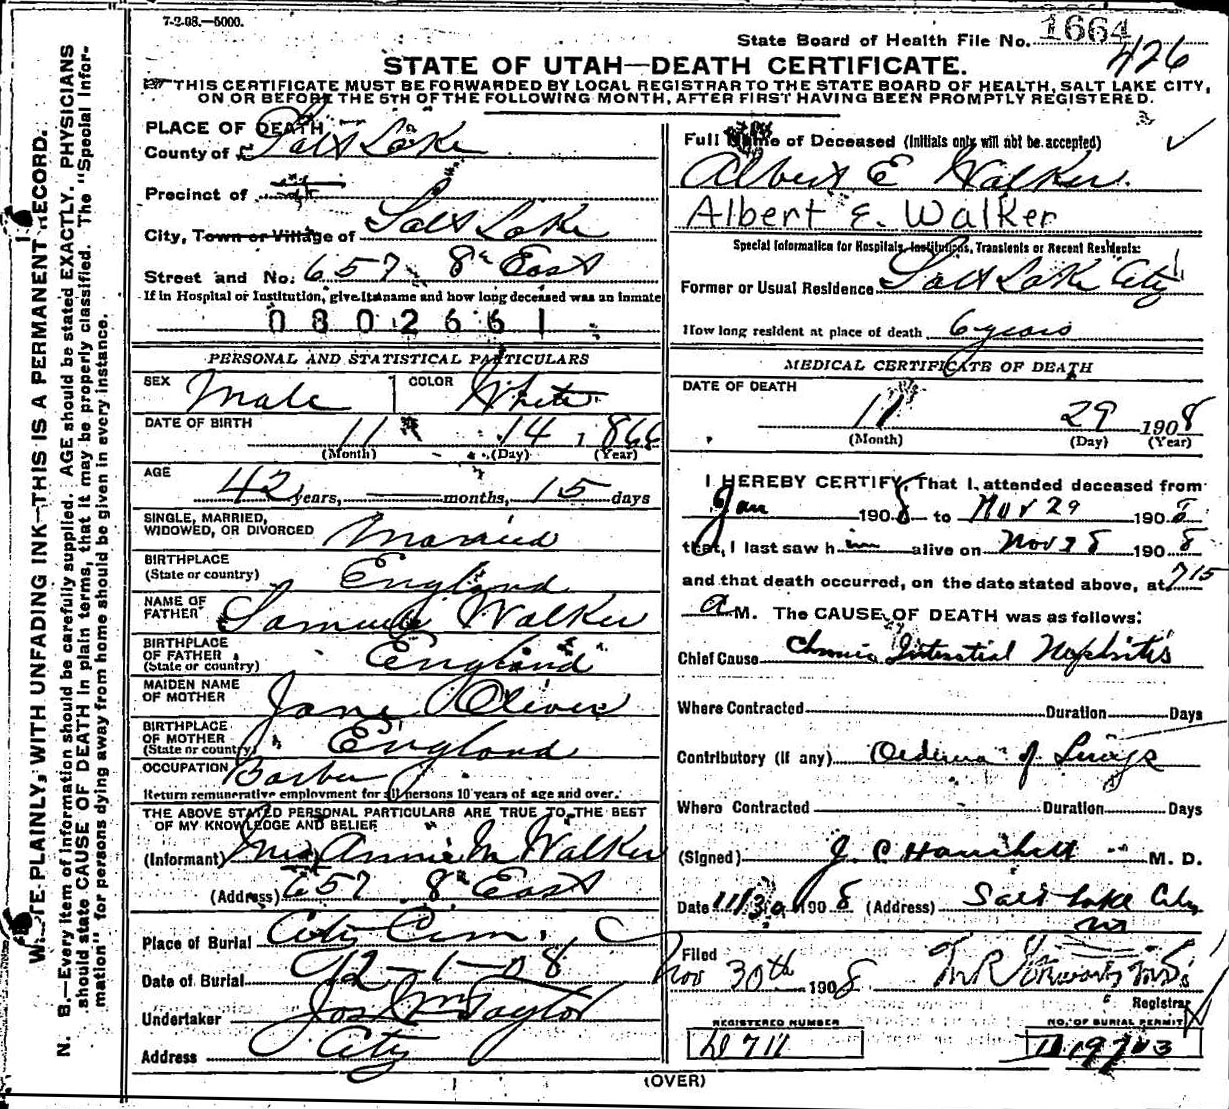 7-2-08.—5000.
State Board of Health File No. 1664
426
STATE OF UTAH—DEATH CERTIFICATE.
THIS CERTIFICATE MUST BE FORWARDED BY LOCAL REGISTRAR TO THE STATE BOARD OF HEALTH, SALT LAKE CITY,
ON OR BEFORE THE 5TH OF THE FOLLOWING MONTH, AFTER FIRST HAVING BEEN PROMPTLY REGISTERED.
WRITE PLAINLY, WITH UNFADING INK—THIS IS A PERMANENT RECORD.
N. B.—Every item of information should be carefully supplied. AGE should be stated EXACTLY. PHYSICIANS
should state CAUSE OF DEATH in plain terms, that it may be properly classified. The "Special Infor-
mation" for persons dying away from home should be given in every instance.
PLACE OF DEATH
County of Salt Lake
Precinct of
City, Town or Village of Salt Lake
Street and No. 657 8th East
If in Hospital or Institution, give its name and how long deceased was an inmate
0802661
PERSONAL AND STATISTICAL PARTICULARS
SEX Male COLOR White
DATE OF BIRTH 11 14, 1866
(Month) (Day) (Year)
AGE 42 years, — months, 15 days
SINGLE, MARRIED,
WIDOWED, OR DIVORCED Married
BIRTHPLACE
(State or country) England
NAME OF
FATHER Samuel Walker
BIRTHPLACE
OF FATHER
(State or country) England
MAIDEN NAME
OF MOTHER Jane Oliver
BIRTHPLACE
OF MOTHER
(State or country) England
OCCUPATION Barber
Return remunerative employment for all persons 10 years of age and over.
THE ABOVE STATED PERSONAL PARTICULARS ARE TRUE TO THE BEST
OF MY KNOWLEDGE AND BELIEF
(Informant) Mrs Annie M Walker
(Address) 657 8th East
Place of Burial City Cem.
Date of Burial 12-1-08
Undertaker Jos Wm Taylor
Address City
Full Name of Deceased (Initials only will not be accepted)
Albert E Walker.
Albert E. Walker
Special Information for Hospitals, Institutions, Transients or Recent Residents:
Former or Usual Residence Salt Lake City
How long resident at place of death 6 years
MEDICAL CERTIFICATE OF DEATH
DATE OF DEATH
11 29 1908
(Month) (Day) (Year)
I HEREBY CERTIFY, That I attended deceased from
Jan 1908 to Nov 29 1908
that, I last saw him alive on Nov 28 1908
and that death occurred, on the date stated above, at 715
a M. The CAUSE OF DEATH was as follows:
Chief Cause Chronic Interstitial Nephritis
Where Contracted Duration Days
Contributory (if any) Oedema of Lungs
Where Contracted Duration Days
(Signed) J. C. M. D.
Date 11/30 1908 (Address) Salt Lake City
Filed
Nov 30th 1908
Registrar
REGISTERED NUMBER
D 711
NO. OF BURIAL PERMIT
(OVER)